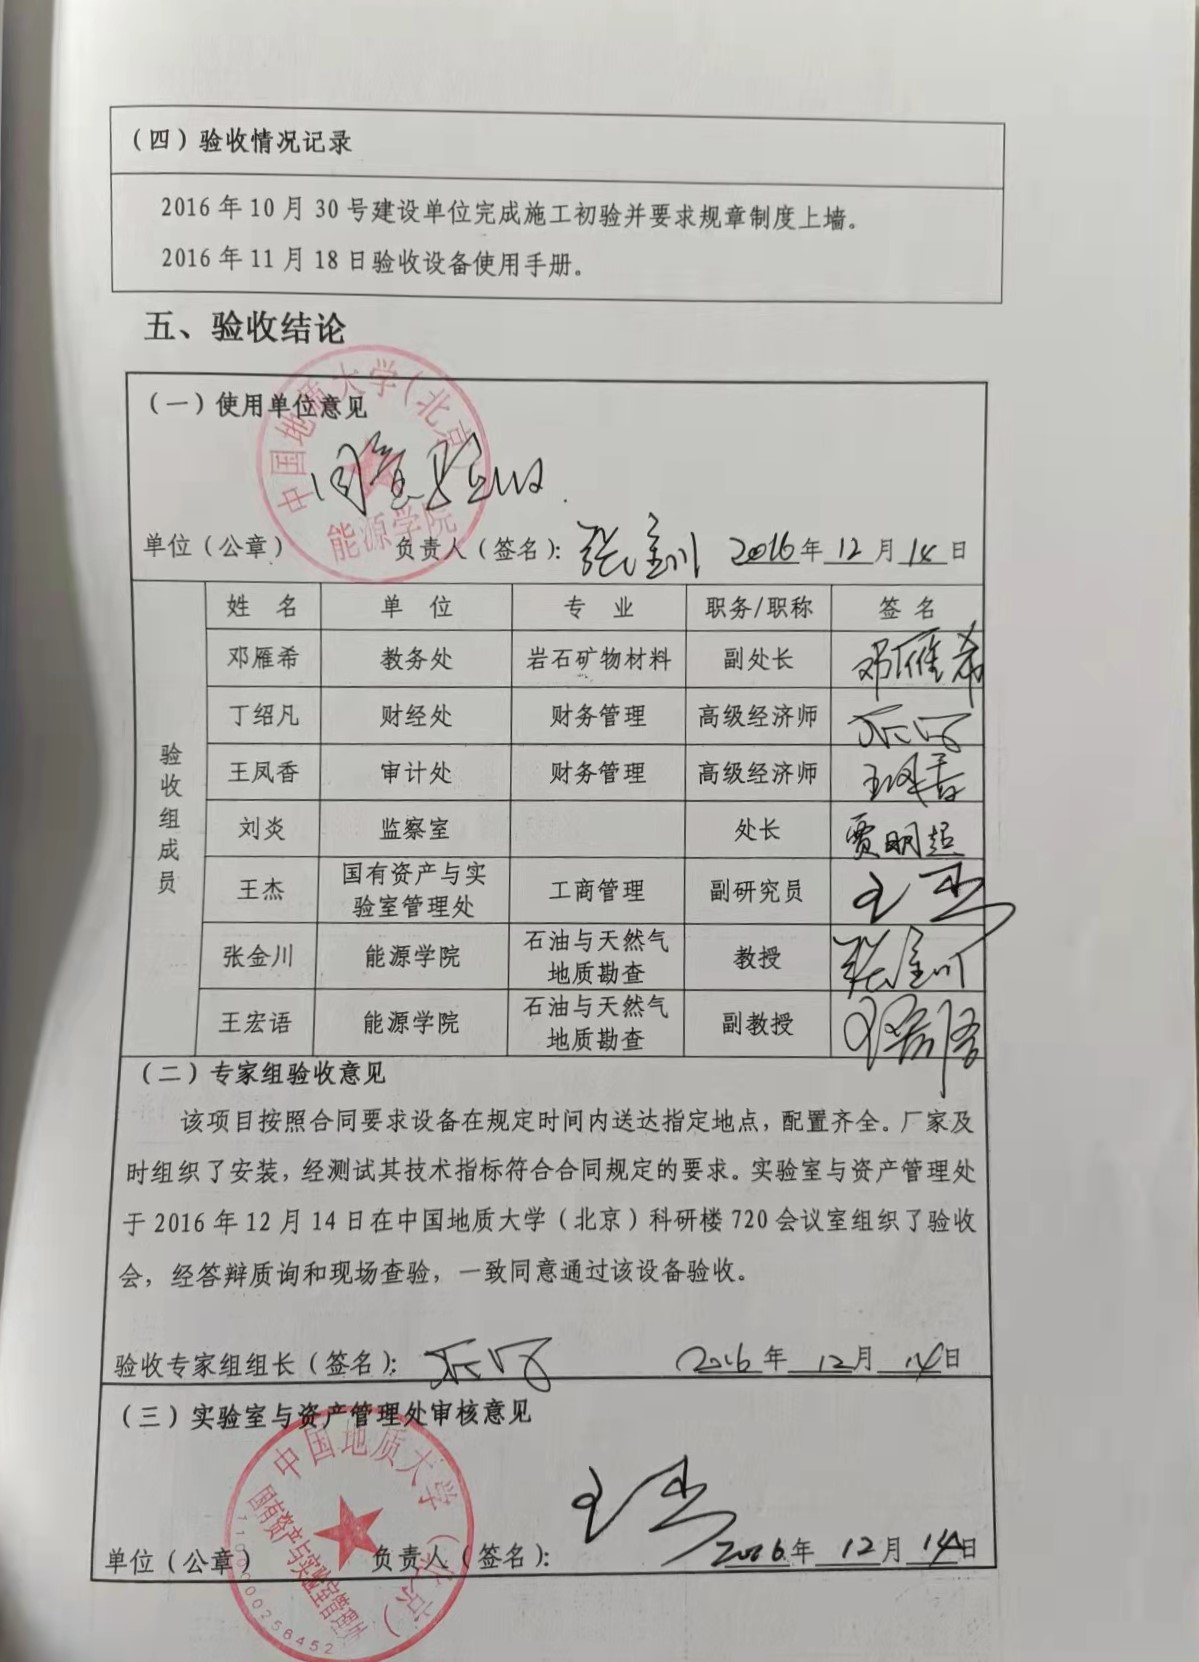 （四）验收情况记录
2016 年 10 月 30 号建设单位完成施工初验并要求规章制度上墙。
2016 年 11 月 18 日验收设备使用手册。
五、验收结论
（一）使用单位意见
中国地质大学（北京）
能源学院
同意验收.
单位（公章） 负责人（签名）：张金川 2016年 12 月 14 日
验收组成员
姓 名 单 位 专 业 职务/职称 签 名
邓雁希 教务处 岩石矿物材料 副处长 邓雁希
丁绍凡 财经处 财务管理 高级经济师
王凤香 审计处 财务管理 高级经济师 王凤香
刘炎 监察室 处长 贾明超
王杰 国有资产与实验室管理处 工商管理 副研究员 王杰
张金川 能源学院 石油与天然气地质勘查 教授 张金川
王宏语 能源学院 石油与天然气地质勘查 副教授 王宏语
（二）专家组验收意见
该项目按照合同要求设备在规定时间内送达指定地点，配置齐全。厂家及
时组织了安装，经测试其技术指标符合合同规定的要求。实验室与资产管理处
于 2016 年 12 月 14 日在中国地质大学（北京）科研楼 720 会议室组织了验收
会，经答辩质询和现场查验，一致同意通过该设备验收。
验收专家组组长（签名）： 2016 年 12 月 14 日
（三）实验室与资产管理处审核意见
中国地质大学（北京）
国有资产与实验室管理处
王杰
单位（公章） 负责人（签名）： 2016 年 12 月 14 日